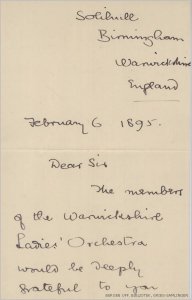 Solihull
Birmingham
Warwickshire
England
February 6 1895.
Dear Sir
The members
of the Warwickshire
Ladies' Orchestra
would be deeply
grateful to you
BERGEN OFF. BIBLIOTEK, GRIEG-SAMLINGEN